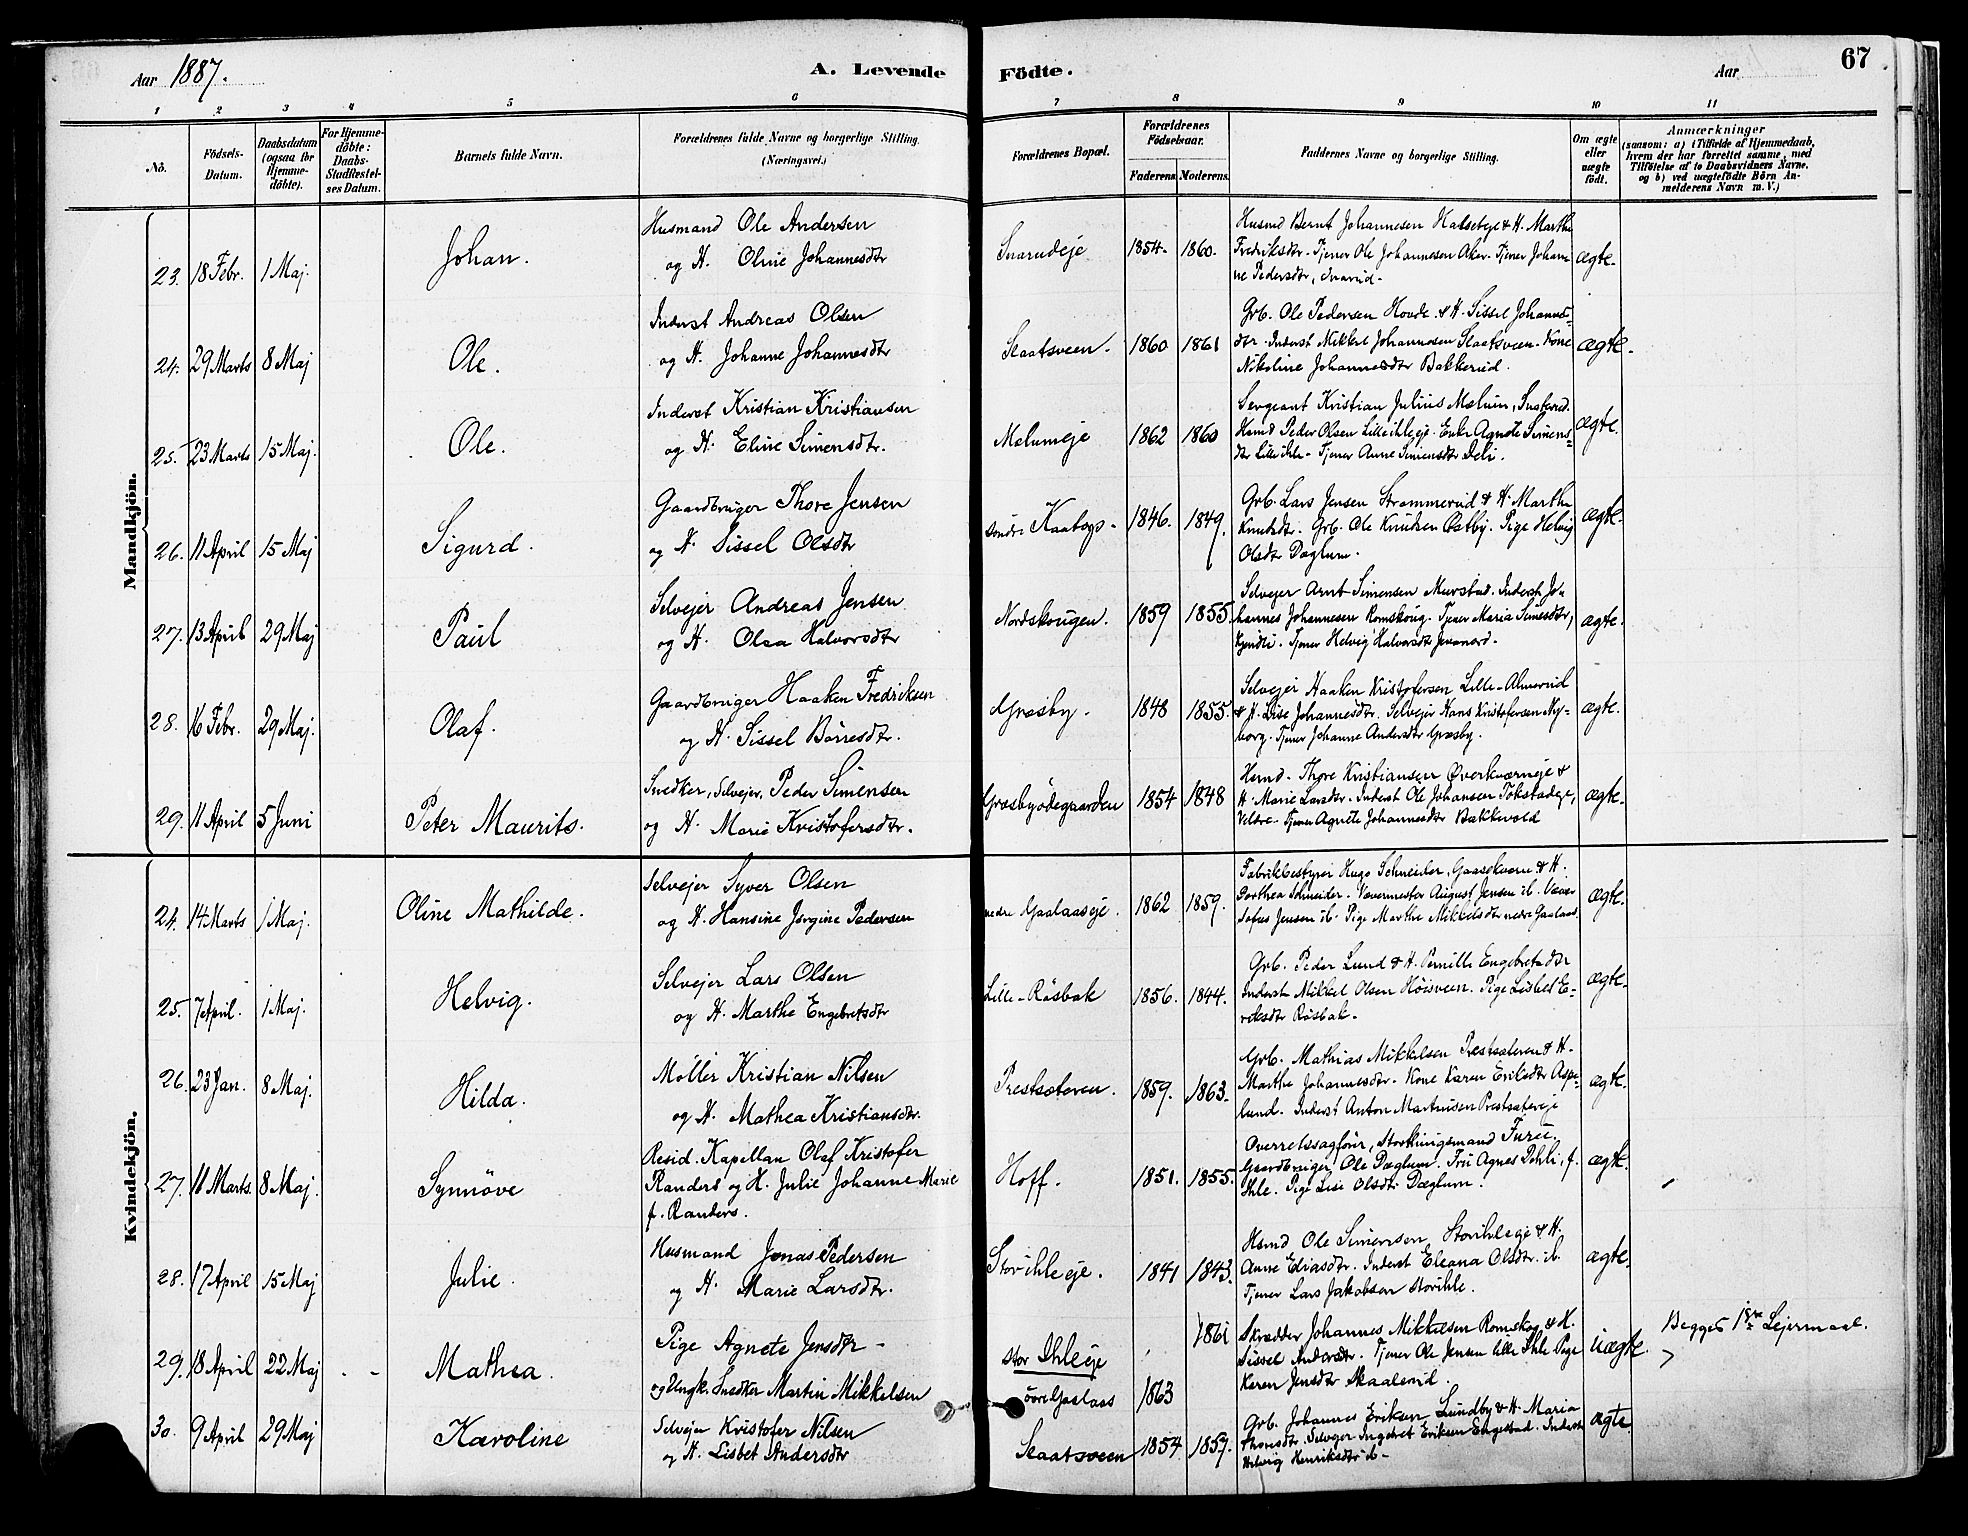 Aar 1887.
A. Levende
Födte.
Aar
67
1 2 3 4 5 6 7 8 9 10 11
No.
Födsels-
Datum.
Daabsdatum
(ogsaa for
Hjemme-
döbte).
For Hjemme-
döbte:
Daabs-
Stadfestel-
ses Datum.
Barnets fulde Navn.
Forældrenes fulde Navne og borgerlige Stilling.
(Næringsvei.)
Forældrenes Bopæl.
Forældrenes
Födselsaar.
Faderens. Moderens.
Faddernes Navne og borgerlige Stilling.
Om ægte
eller
uægte
födt.
Anmærkninger
(saasom: a) i Tilfælde af Hjemmedaab,
hvem der har forrettet samme, med
Tilföielse af to Daabsvidners Navne,
og b) ved uægtefödte Börn An-
melderens Navn m. V.)
Mandkjön.
23. 18 Febr. 1 Maj. Johan.
Husmand Ole Andersen
og H. Oline Johannesdtr
Snarudeje 1854- 1860.
Husmd Bernt Johannesen & H. Marthe
Fredriksdtr. Tjener Ole Johannesen Aker. Tjener Johan-
ne Pedersdtr, Snarud-
ægte.
24. 29 Marts 8 Maj Ole.
Inderst Andreas Olsen
og H. Johanne Johannesdtr
Skaatsveen. 1860 1861
Grb. Ole Pedersen Hovde & H. Sissel Johannes-
dtr. Inderst Mikkel Johannesen Skaatsveen. Kone
Nikoline Johannesdtr Bakkerud.
ægte.
25. 23 Marts 15 Maj. Ole.
Inderst Kristian Kristiansen
og H. Eline Simensdtr.
Melumeje 1862 1860
Sergeant Kristian Julius Melum,
Hsmd Peder Olsen Lilleihleeje. Enke Agnete Simens-
dtr Lilleihle- Tjener Anne Simensdtr Deli.
ægte.
26. 11 April 15 Maj Sigurd.
Gaardbruger Thore Jensen
og H. Sissel Olsdtr
söndre 1846. 1849.
Grb. Lars Jensen Strommerud & H. Marthe
Knutsdtr. Grb. Ole Knutsen Pige Helvig
Olsdtr Dæglum.
ægte.
27. 13 April 29 Maj Paul
Selvejer Andreas Jensen
og H. Olea Halvorsdtr
Nordskougen. 1859 1855.
Selvejer Arnt Simensen Murstad. Inderst Jo-
hannes Johannesen Romskoug. Tjener Maria
Tjener Helvig Halvorsdtr
ægte.
28. 16 Febr. 29 Maj. Olaf.
Gaardbruger Haaken Fredriksen
og H. Sissel Börresdtr.
Græsby. 1848 1855.
Selvejer Haaken Kristofersen Lille-Almerud
& H. Lise Johannesdtr. Selvejer Hans Kristofersen Ny-
borg. Tjener Johanne Andersdtr Græsby.
ægte.
29. 11 April 5 Juni Peter Maurits.
Snedker, Selvejer, Peder Simensen
og H. Marie Kristofersdtr.
Græsbyödegaarden 1854 1848
Hsmd. Thore Kristiansen Øverkværneje &
H. Marie Larsdtr. Inderst Ole Johansen Tokstadeje,
Veldre. Tjener Agnete Johannesdtr Bakkevold
ægte.
Kvindekjön.
24. 14 Marts 1 Maj. Oline Mathilde.
Selvejer Syver Olsen
og H. Hansine Jörgine Pedersen
nedre Gaalaaseje. 1862 1859.
Fabrikbestyrer Hugo Schneider, & H.
Dorthea Schneider. Vævermester August Jensen ib. Væver
Sofus Jensen ib. Pige Marthe Mikkelsdtr nedre Gaalaas
ægte.
25. 7 April. 1 Maj. Helvig.
Selvejer Lars Olsen
og H. Marthe Engebretsdtr
Lille-Røsbak 1856. 1844.
Grb. Peder Lund & H. Pernille Engebretsdtr
Inderst Mikkel Olsen Höisveen. Pige Lisbet E-
riksdtr Røsbak.
ægte.
26. 23 Jan. 8 Maj. Hilda.
Møller Kristian Nilsen
og H. Mathea Kristiansdtr.
Prestsæteren. 1859. 1863.
Grb. Mathias Mikkelsen Prestsæteren & H.
Marthe Johannesdtr. Kone Karen Eriksdtr Aspe-
lund. Inderst Anton Martinsen Prestsætereje
ægte.
27. 11 Marts. 8 Maj. Synnöve
Resid. Kapellan Olaf Kristofer
Randers og H. Julie Johanne Marie
f. Randers.
Hoff. 1851. 1855.
Overretssagförer, Storthingsmand Furu,
Gaardbruger, Ole Dæglum. Fru Agnes Dehli, f.
Ihle. Pige Lise Olsdtr Dæglum.
ægte.
28. 17 April 15 Maj Julie.
Husmand Jonas Pedersen
og H. Marie Larsdtr.
Storihleeje. 1841 1843.
Hsmd Ole Simensen Storihleeje & H.
Anne Eliasdtr. Inderst Eleana Olsdtr. ib.
Tjener Lars Jakobsen Storihle.
ægte.
29. 18 April 22 Maj Mathea.
Pige Agnete Jensdtr -
og Ungk. Snedker Martin Mikkelsen
stor Ihleeje
övre Gaalaas 1863 1861
Skrædder Johannes Mikkelsen Romskog & H.
Sissel Andersdtr. Tjener Ole Jensen lille Ihle Pige
Karen Jensdtr Skaalerud.
uægte.
Begges 1ste Lejermaal.
30. 9 April 29 Maj Karoline
Selvejer Kristofer Nilsen
og H. Lisbet Andersdtr
Skaatsveen 1854. 1857.
Grb. Johannes Eriksen Lundby & H. Maria
Thorsdtr. Selvejer Ingebret Eriksen Engelstad. Inderst
Helvig Henriksdtr ib.
ægte.